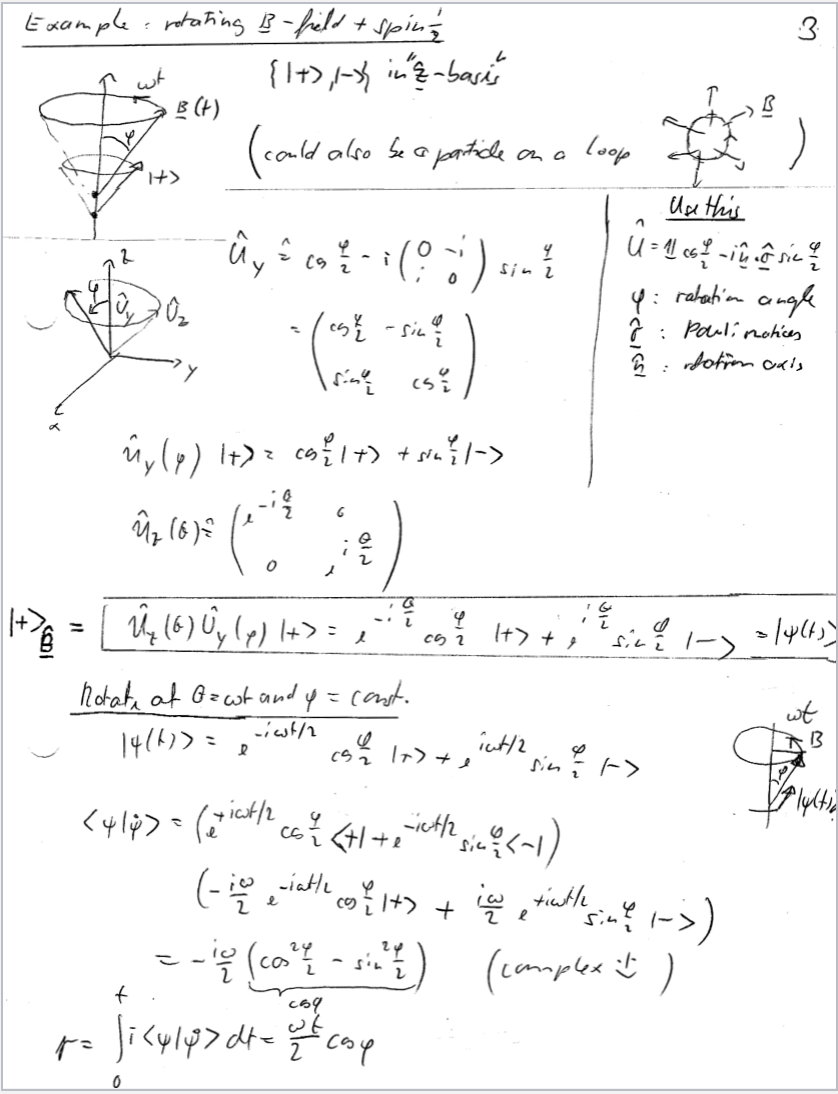 Example: rotating B-field + spin ½
3
{|+>,|->} in "ẑ-basis"
ωt
B(t)
φ
|+>
(could also be a particle on a loop
B
)
Use this
Û = 𝟙 cos φ/2 - i n̂·σ̂ sin φ/2
φ: rotation angle
σ̂: Pauli matrices
n̂: rotation axis
Û_y ≙ cos φ/2 - i (0 -i; i 0) sin φ/2
= (cos φ/2 -sin φ/2; sin φ/2 cos φ/2)
z
φ
Û_y
Û_z
y
x
û_y(φ) |+> = cos φ/2 |+> + sin φ/2 |->
û_z(θ) ≙ (e^{-iθ/2} 0; 0 e^{iθ/2})
|+>_B̂ = Û_z(θ) Û_y(φ) |+> = e^{-iθ/2} cos φ/2 |+> + e^{iθ/2} sin φ/2 |-> = |ψ(t)>
Rotate at θ=ωt and φ = const.
|ψ(t)> = e^{-iωt/2} cos φ/2 |+> + e^{iωt/2} sin φ/2 |->
ωt
B
φ
|ψ(t)>
<ψ|ψ̇> = (e^{+iωt/2} cos φ/2 <+| + e^{-iωt/2} sin φ/2 <-|)
(-iω/2 e^{-iωt/2} cos φ/2 |+> + iω/2 e^{+iωt/2} sin φ/2 |->)
= -iω/2 (cos² φ/2 - sin² φ/2) (complex !)
cos φ
γ = ∫₀ᵗ i<ψ|ψ̇> dt = ωt/2 cos φ